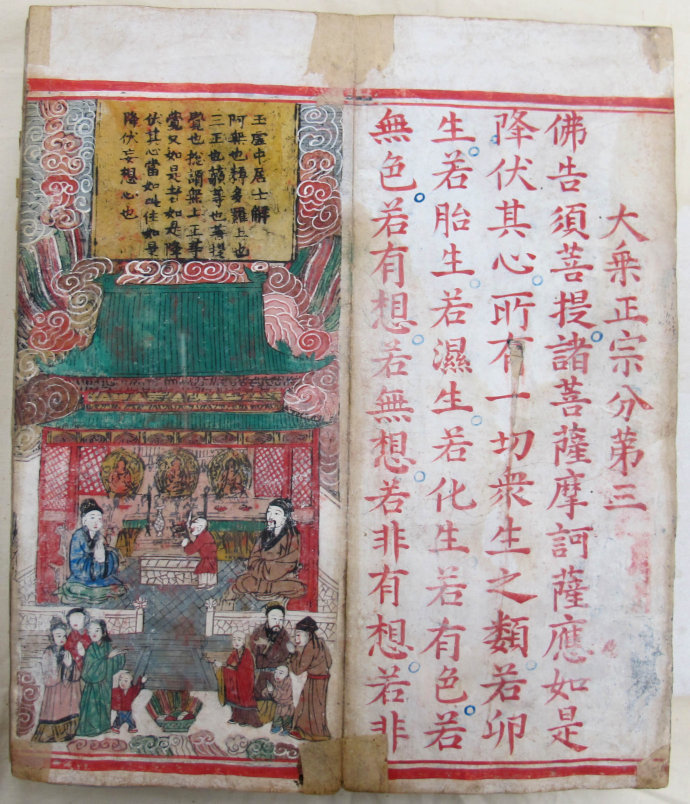 大乗正宗分第三
佛告須菩提諸菩薩摩訶薩應如是
降伏其心所有一切衆生之類若卵
生若胎生若濕生若化生若有色若
無色若有想若無想若非有想若非
玉虛中居士解
阿無也耨多羅上也
三正也藐等也菩提
覺也総謂無上正等
覺又如是者如是降
伏其心當如此住如是
降伏妄想心也